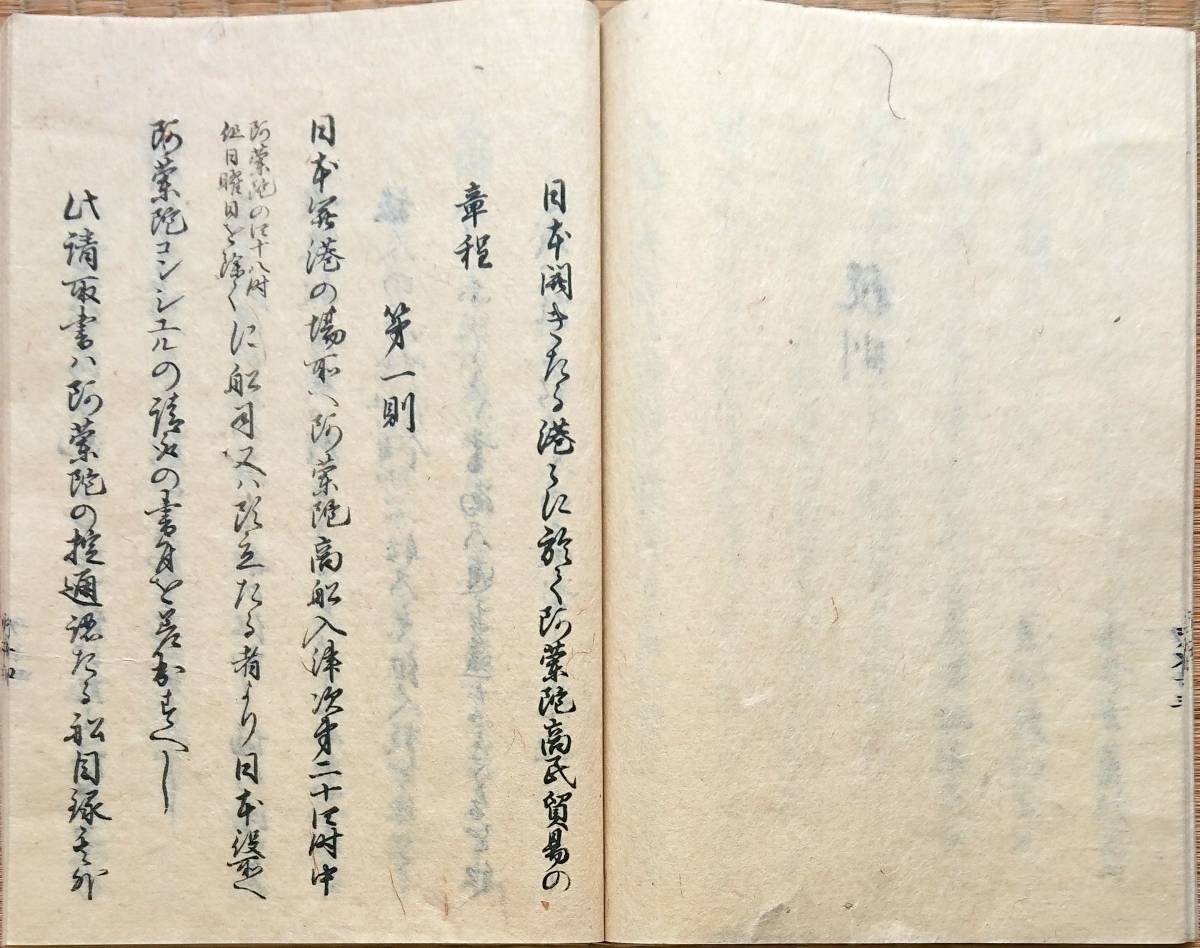 日本開きたる港々に於て阿蘭陀商民貿易の
章程
第一則
日本開港の場所へ阿蘭陀商船入津次第二十四時中
阿蘭陀の四十八時
但日曜日を除く
に船司又ハ頭立たる者より日本役所へ
阿蘭陀コンシユルの請取の書付を差出すへし
此請取書ハ阿蘭陀の掟通認たる船目録其外